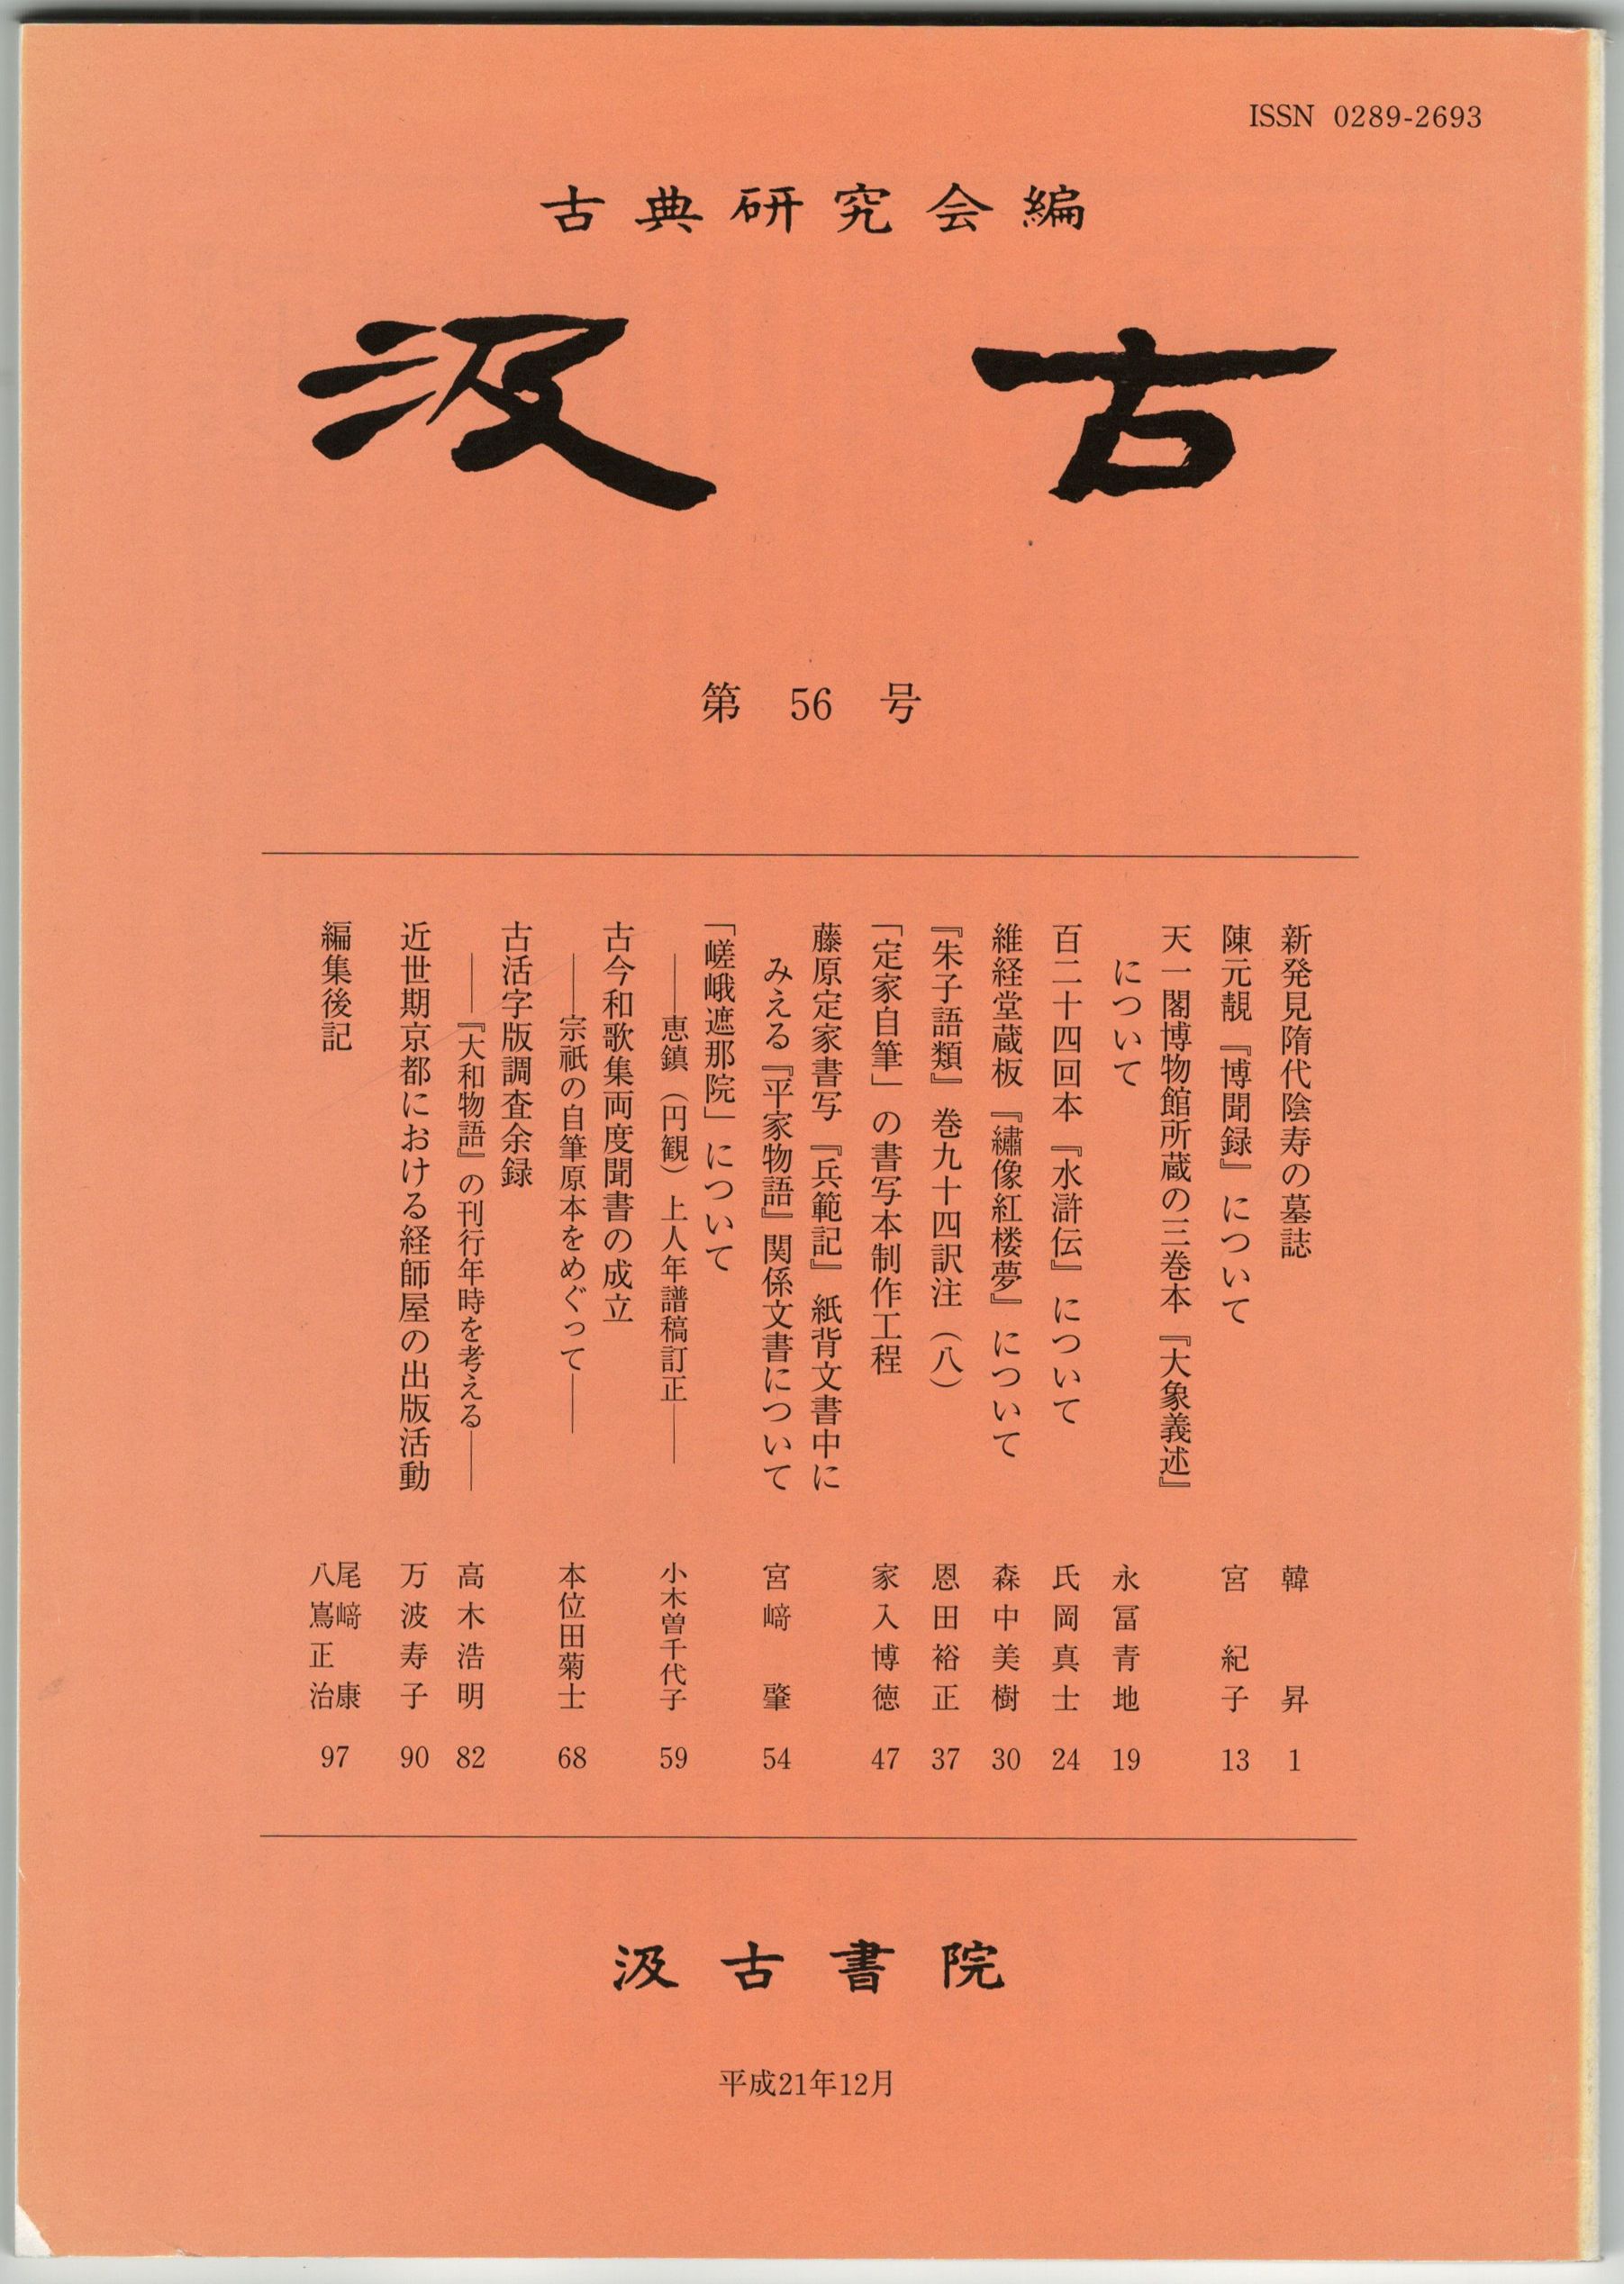 ISSN 0289-2693
古典研究会編
汲古
第 56 号
新発見隋代陰寿の墓誌 韓昇 1
陳元靚『博聞録』について 宮紀子 13
天一閣博物館所蔵の三巻本『大象義述』
について 永冨青地 19
百二十四回本『水滸伝』について 氏岡真士 24
維経堂蔵板『繡像紅楼夢』について 森中美樹 30
『朱子語類』巻九十四訳注（八） 恩田裕正 37
「定家自筆」の書写本制作工程 家入博徳 47
藤原定家書写『兵範記』紙背文書中に
みえる『平家物語』関係文書について 宮﨑肇 54
「嵯峨遮那院」について
――恵鎮（円観）上人年譜稿訂正―― 小木曽千代子 59
古今和歌集両度聞書の成立
――宗祇の自筆原本をめぐって―― 本位田菊士 68
古活字版調査余録
――『大和物語』の刊行年時を考える―― 高木浩明 82
近世期京都における経師屋の出版活動 万波寿子 90
編集後記 尾﨑康 八嶌正治 97
汲古書院
平成21年12月